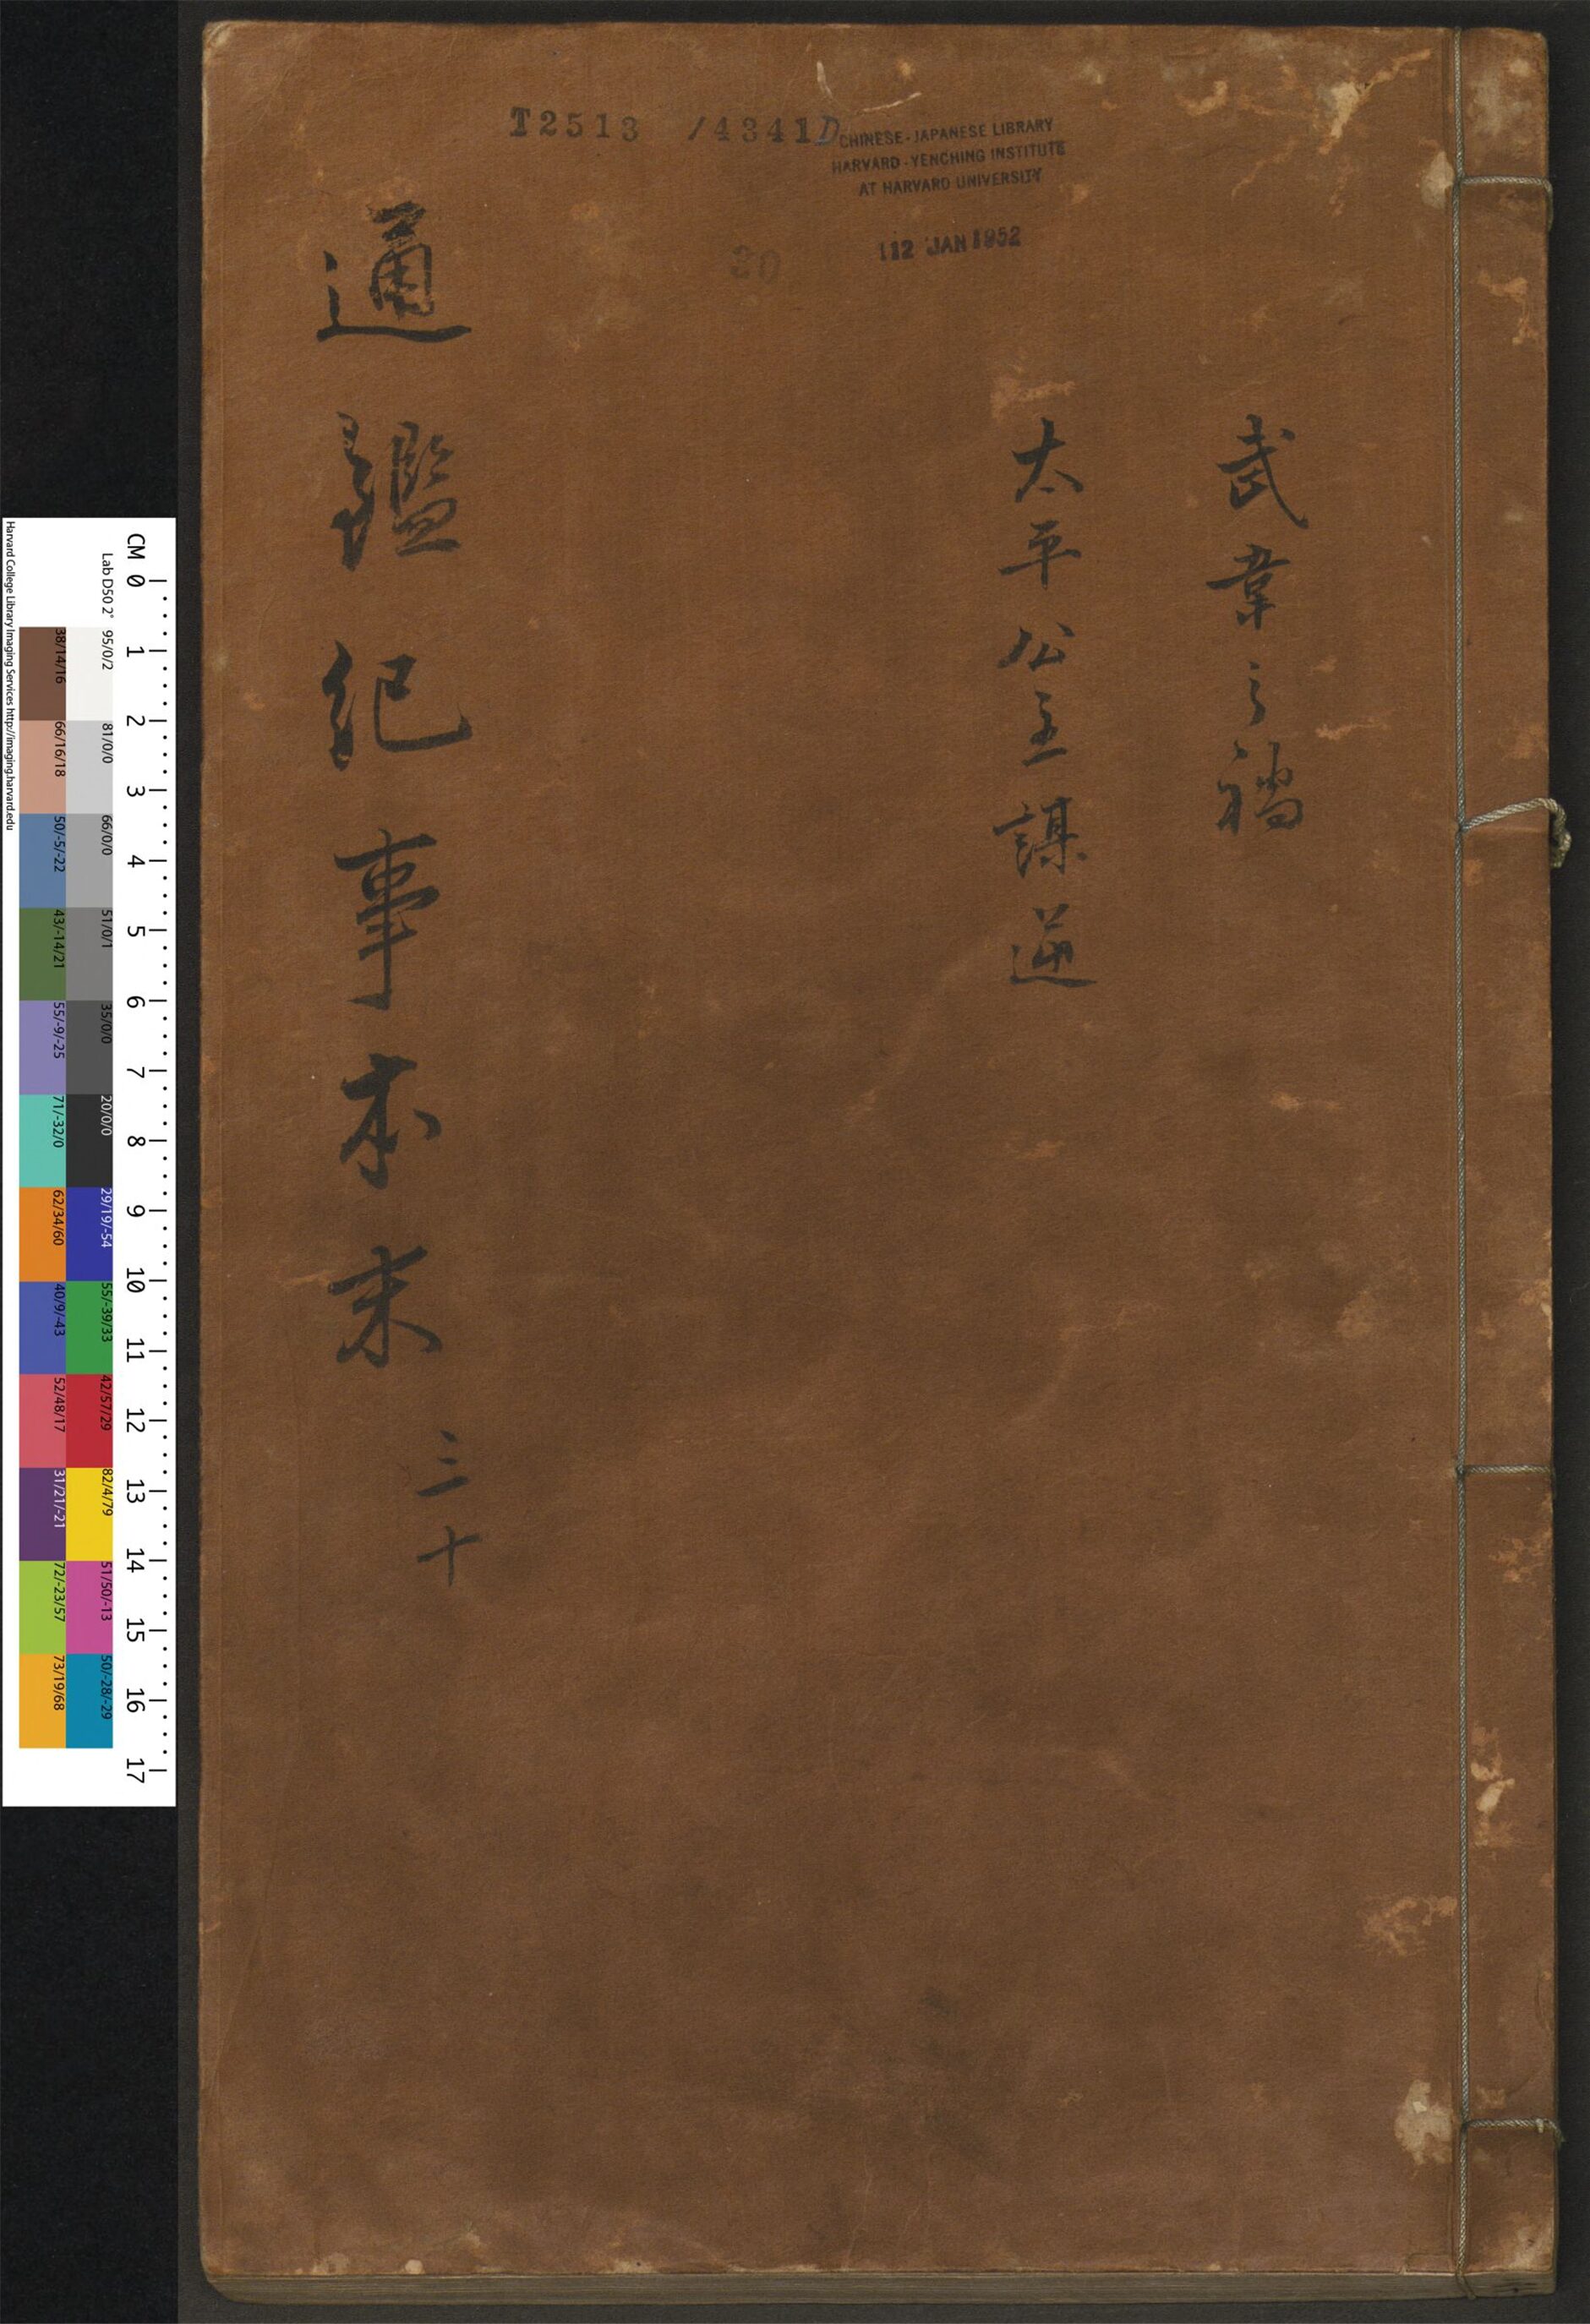 T2513 /4341D
CHINESE-JAPANESE LIBRARY
HARVARD-YENCHING INSTITUTE
AT HARVARD UNIVERSITY
12 JAN 1952
30
武韋之禍
太平公主謀逆
通鑑紀事本末
三十
CM 0 1 2 3 4 5 6 7 8 9 10 11 12 13 14 15 16 17
Lab D50 2° 95/0/2 81/0/0 66/0/0 51/0/1 35/0/0 20/0/0 29/19/-54 55/-39/33 42/57/29 82/4/79 51/50/-13 50/-28/-29
38/14/16 66/16/18 50/-5/-22 43/-14/21 55/-9/-25 71/-32/0 62/34/60 40/9/-43 52/48/17 31/21/-21 72/-23/57 73/19/68
Harvard College Library Imaging Services http://imaging.harvard.edu